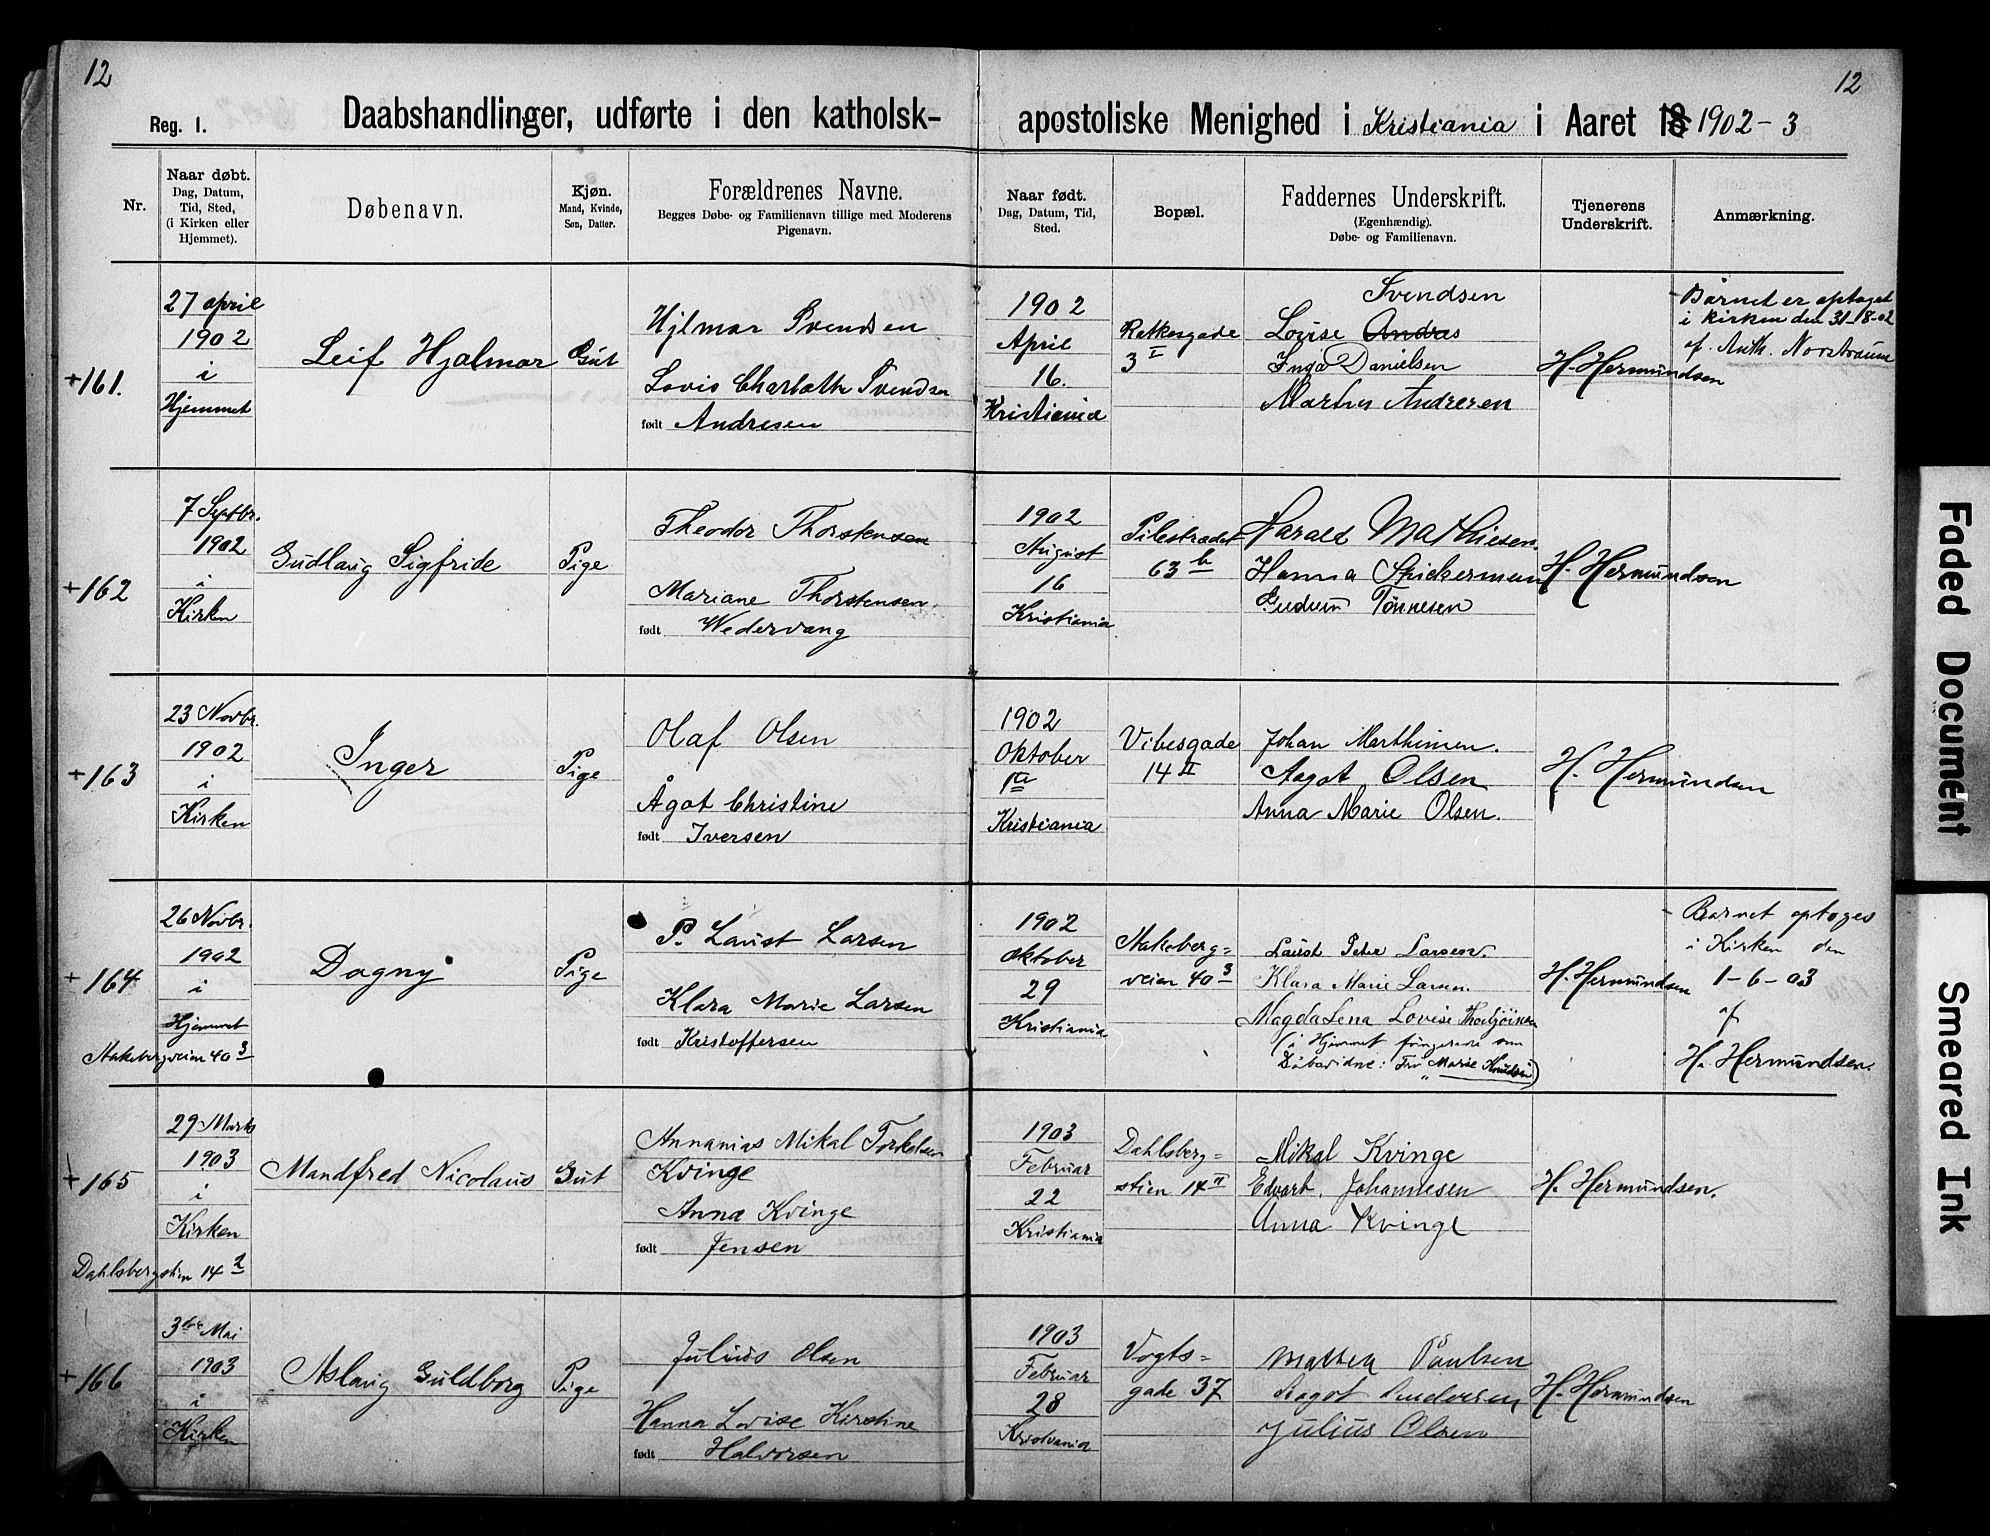 12
12
Reg. 1.
Daabshandlinger, udførte i den katholsk-apostoliske Menighed i Kristiania i Aaret 18 1902-3
Nr.
Naar døbt.
Dag, Datum,
Tid, Sted,
(i Kirken eller
Hjemmet).
Døbenavn.
Kjøn.
Mand, Kvinde,
Søn, Datter.
Forældrenes Navne.
Begges Døbe- og Familienavn tillige med Moderens
Pigenavn.
Naar født.
Dag, Datum, Tid,
Sted.
Bopæl.
Faddernes Underskrift.
(Egenhændig).
Døbe- og Familienavn.
Tjenerens
Underskrift.
Anmærkning.
+161.
27 april
1902
i
Hjemmet
Leif Hjalmar
Gut
Hjlmar Svendsen
Lovis Charlotte Svendsen
født Andresen
1902
April
16.
Kristiania
3 I
Svendsen
Louise Andres
Inga Danielsen
H. Hermundsen
Barnet er optaget
i kirken den 31-8-02
af. Anth. Norstraum
+162
7 Septbr.
1902
i
Kirken
Gudlaug Sigfride
Pige
Theodor Thorstensen
Mariane Thorstensen
født Wedervang
1902
August
16
Kristiania
Pilestrædet
63 b
Harald Mathiesen.
Hanna
Gudrun Tønnesen
H. Hermundsen
+163
23 Novbr.
1902
i
Kirken
Inger
Pige
Olaf Olsen
Ågot Christine
født Iversen
1902
Oktober
1ta
Kristiania
Vibesgade
14 II
Johan
Aagot Olsen
Anna Marie Olsen.
H. Hermundsen
+164
26 Novbr.
1902
i
Hjemmet
Aakebergveien 40 3
Dagny
Pige
P. Laust Larsen
Klara Marie Larsen
født Kristoffersen
1902
Oktober
29
Kristiania
Aakeberg=
veien 40 3
Laust Peter Larsen.
Klara Marie Larsen.
Magdalena Lovise
(i Hjemmet fungerede som
Daabsvidne: Fru Marie Knudsen)
H. Hermundsen
Barnet optoges
i Kirken den
1-6-03
af
H. Hermundsen.
+165
29 Marts
1903
i
Kirken
Dahlsbergstien 14 2
Mandfred Nicolaus
Gut
Annanias Mikal Torkelsen
Kvinge
Anna Kvinge
født Jensen
1903
Februar
22
Kristiania
Dahlsberg=
stien 14 II
Mikal Kvinge
Edvart. Johannesen
Anna Kvinge
H. Hermundsen.
+166
3die Mai
1903
i
Kirken
Aslaug Guldborg
Pige
Julius Olsen
Hanna Lovise Kirstine
født Halvorsen
1903
Februar
28
Kristiania
Vogts=
gade 37
Mathea Paulsen
Aagot
Julius Olsen
H. Hermundsen
Faded Document
Smeared Ink